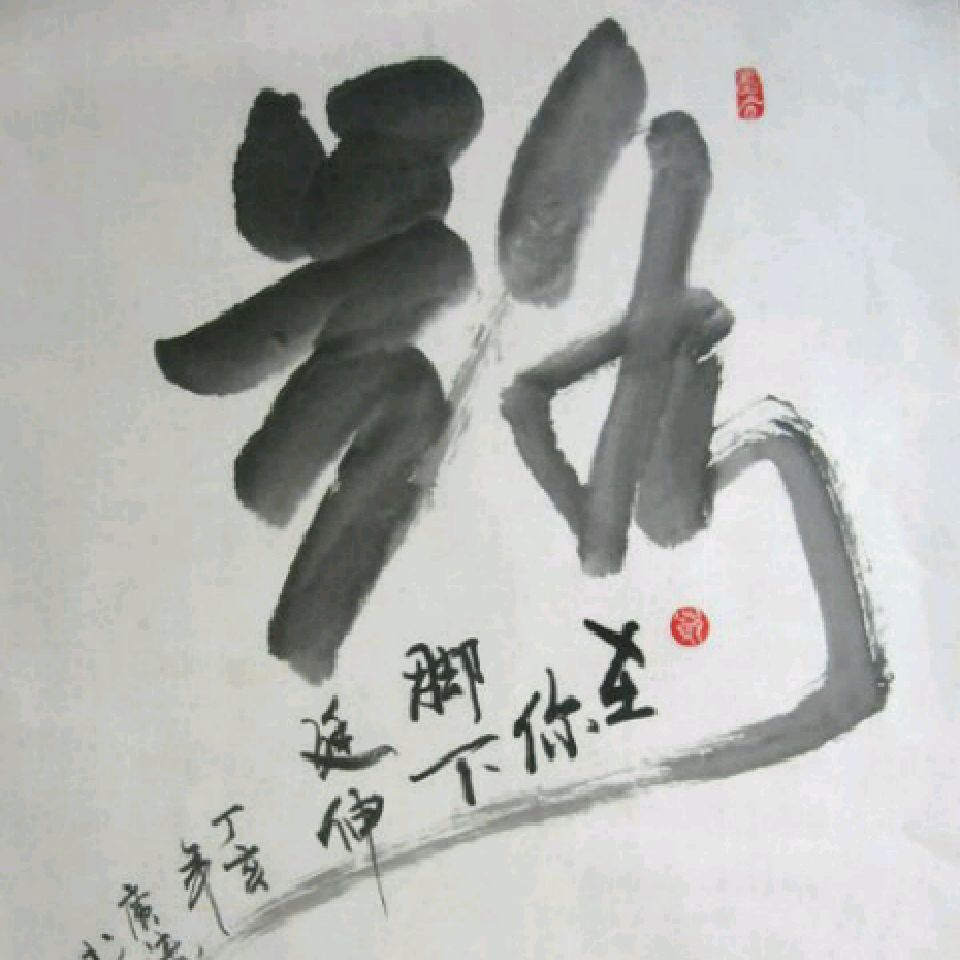 路
在
你
脚下
延伸
丁亥
年